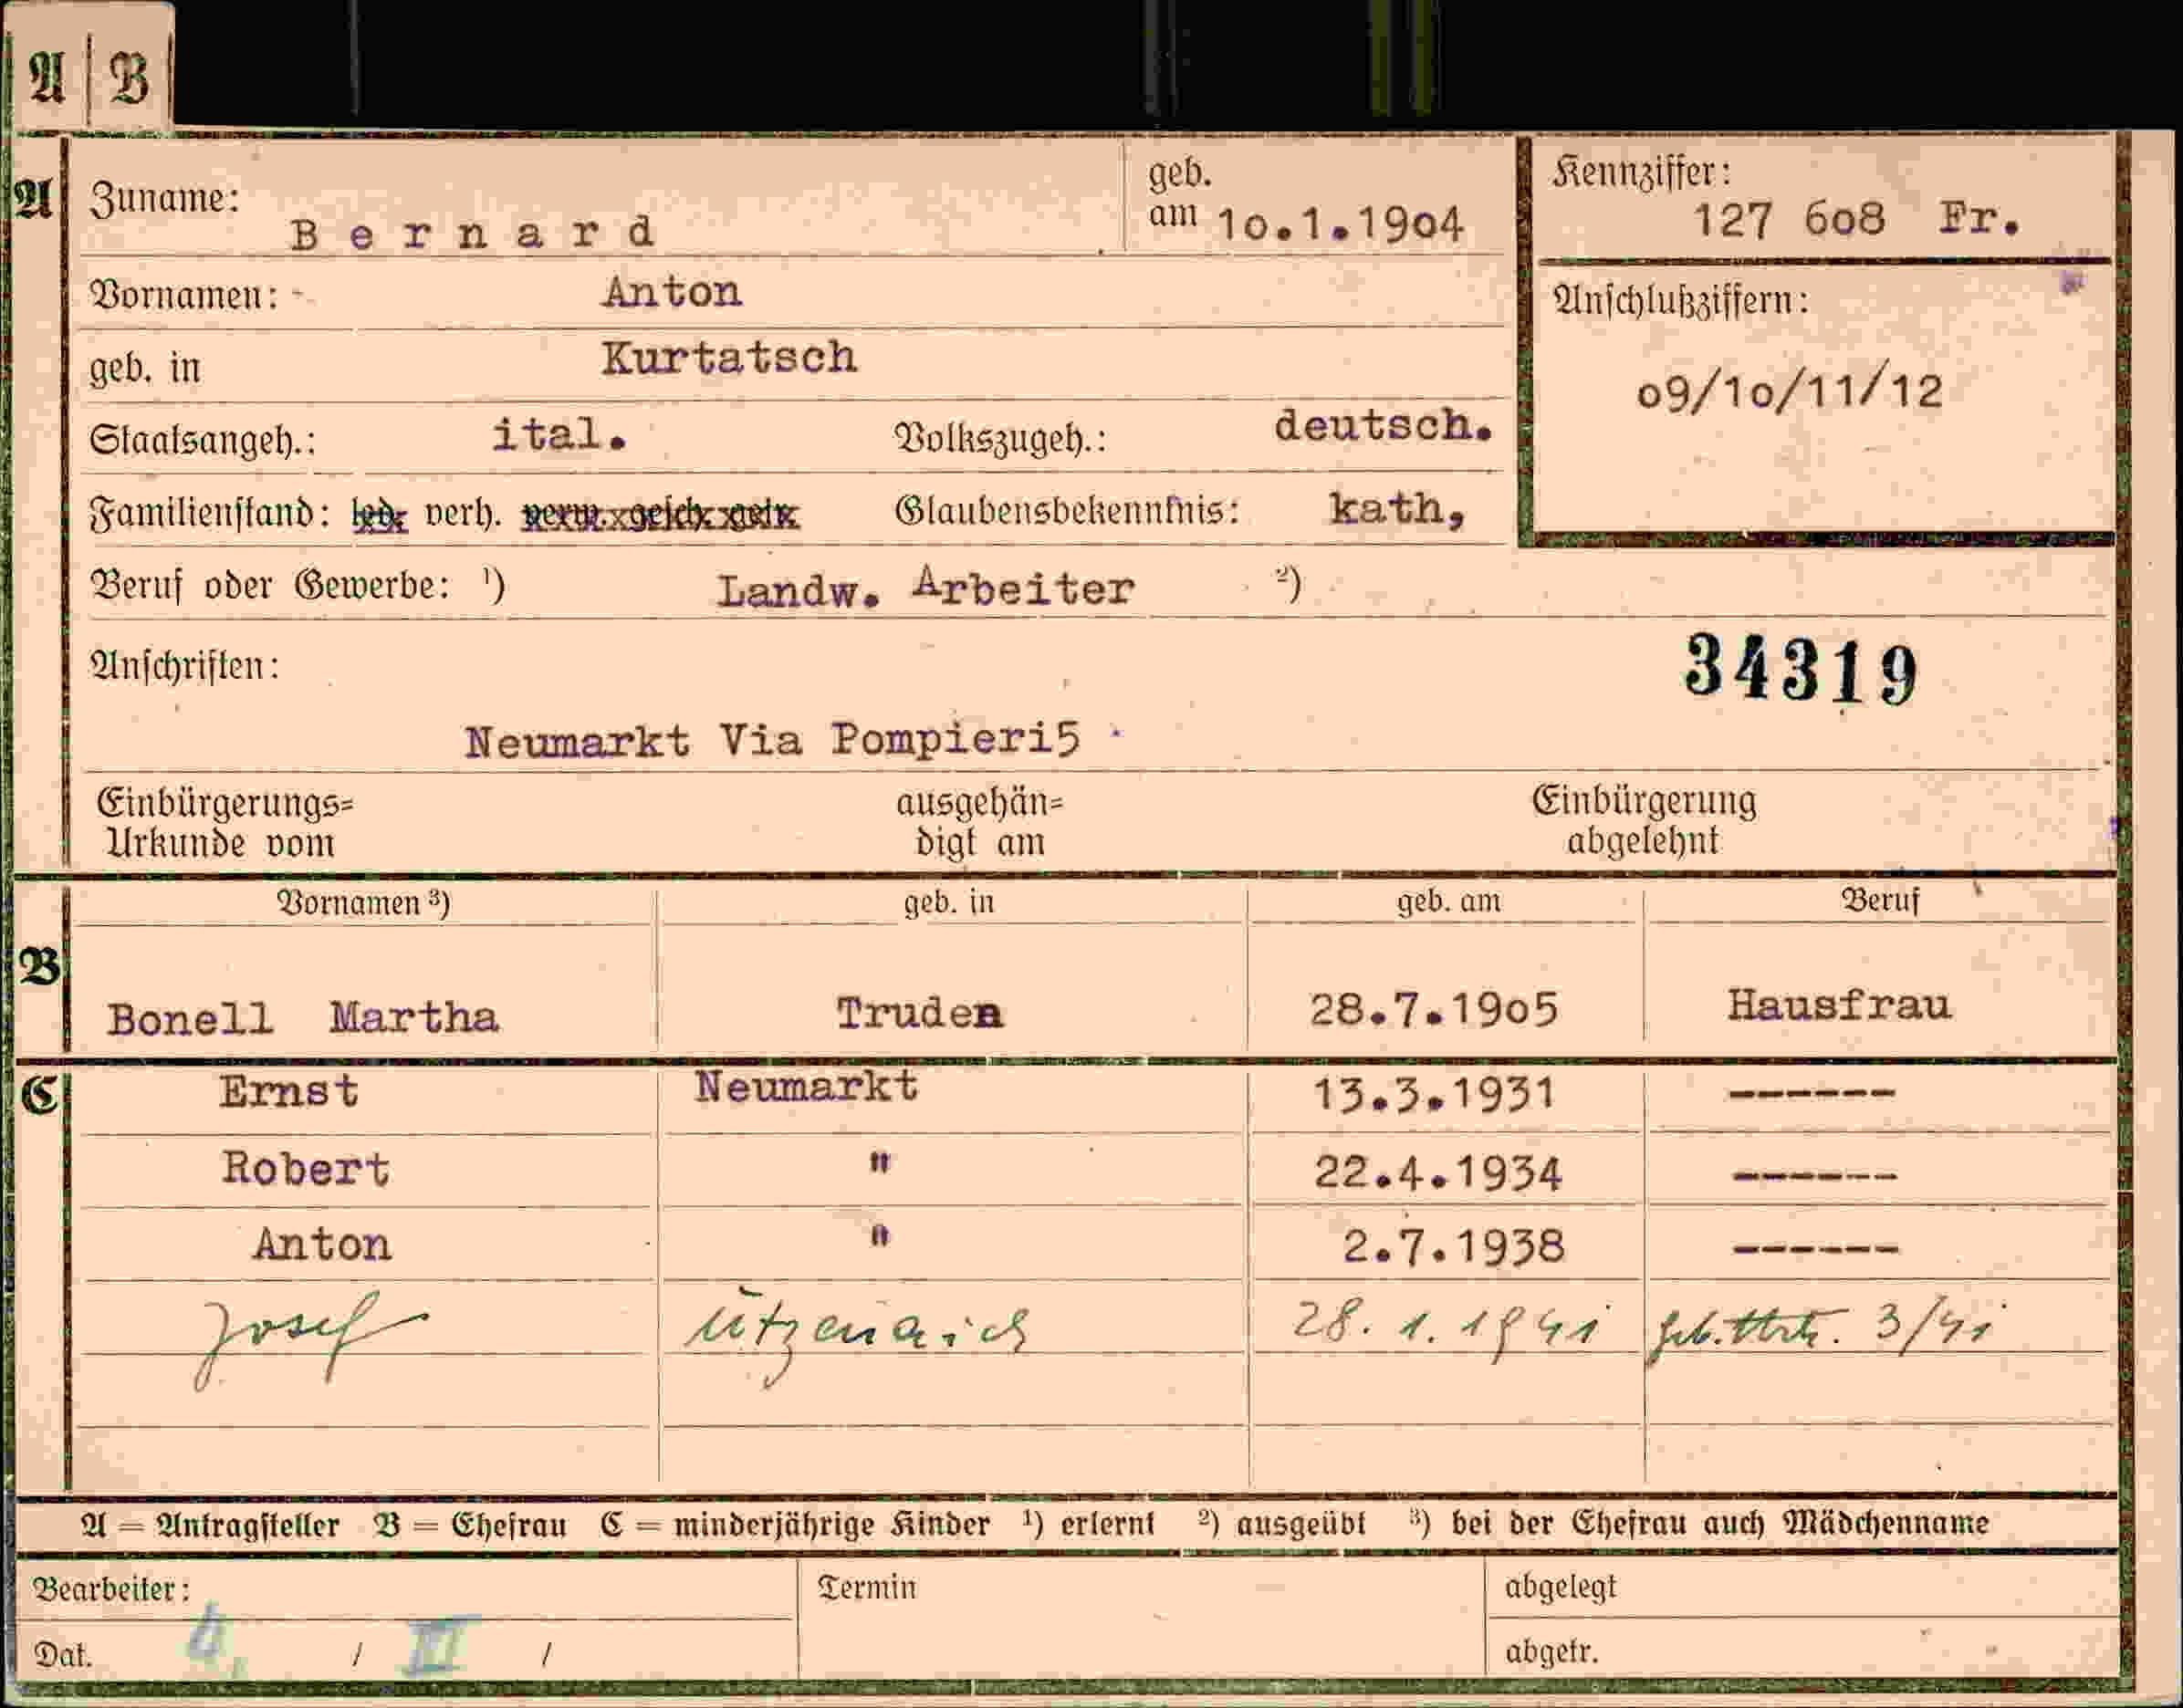 A | B
A Zuname: Bernard geb. am 10.1.1904
Kennziffer: 127 608 Fr.
Vornamen: Anton
Anschlußziffern:
09/10/11/12
geb. in Kurtatsch
Staatsangeh.: ital. Volkszugeh.: deutsch.
Familienstand: led. verh. verw. gesch. getr. Glaubensbekenntnis: kath,
Beruf oder Gewerbe: ¹) Landw. Arbeiter ²)
Anschriften: 34319
Neumarkt Via Pompieri5
Einbürgerungs= ausgehän= Einbürgerung
Urkunde vom digt am abgelehnt
Vornamen ³) geb. in geb. am Beruf
B Bonell Martha Truden 28.7.1905 Hausfrau
C Ernst Neumarkt 13.3.1931 ------
Robert " 22.4.1934 ------
Anton " 2.7.1938 ------
Josef Utzenaich 28. 1. 1941 3/41
A = Antragsteller B = Ehefrau C = minderjährige Kinder ¹) erlernt ²) ausgeübt ³) bei der Ehefrau auch Mädchenname
Bearbeiter: Termin abgelegt
Dat. / II / abgetr.